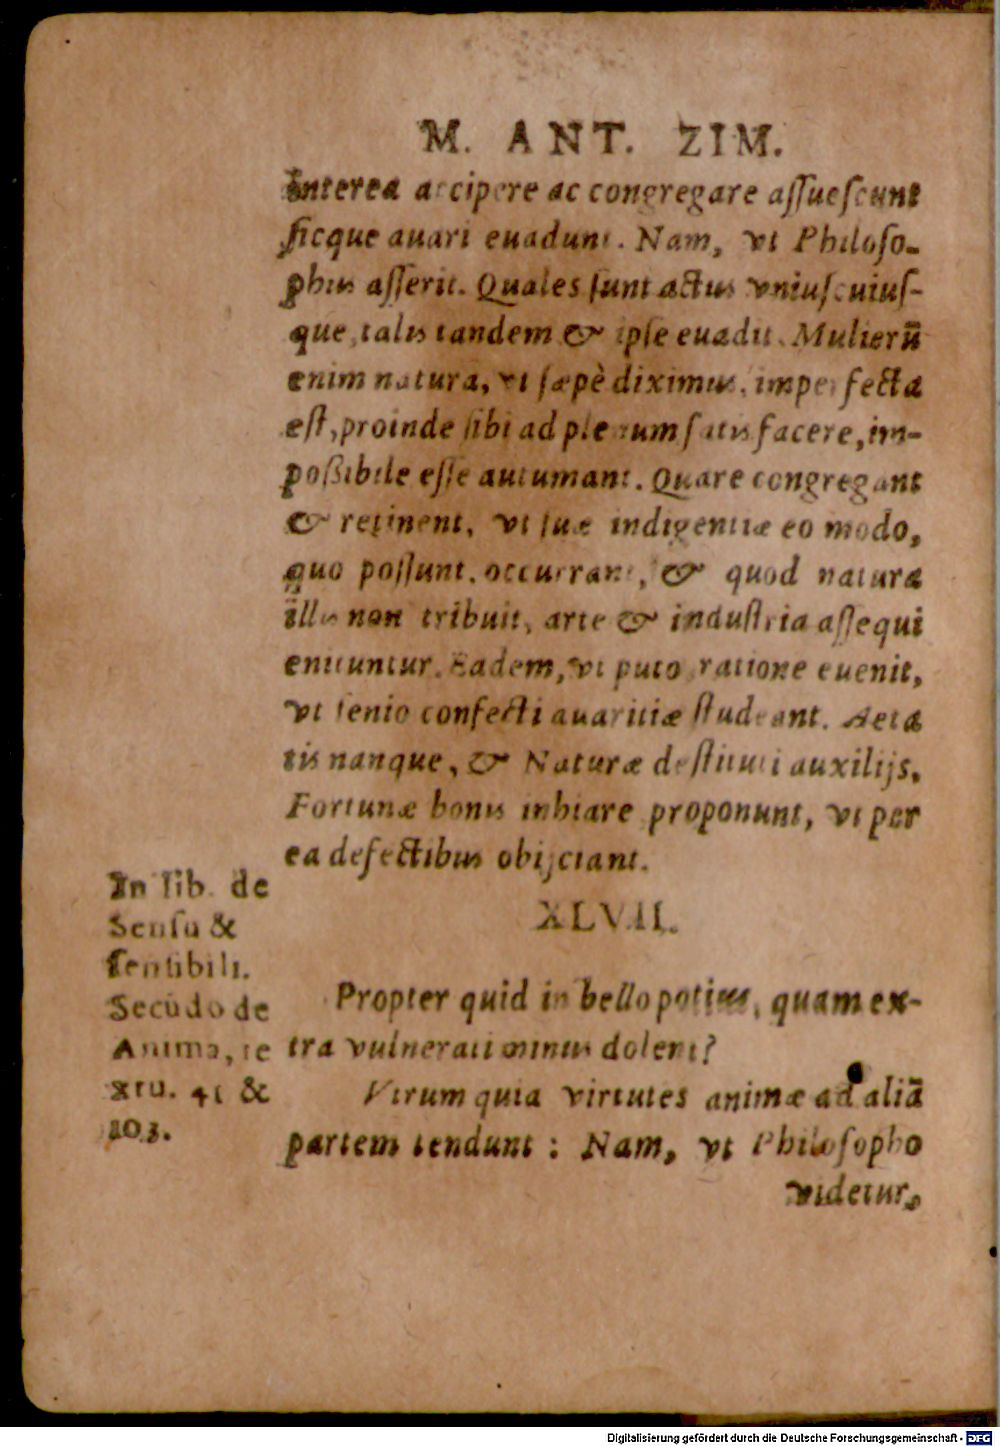 M. ANT. ZIM.
Interea accipere ac congregare aſſueſcunt
ſicque auari euadunt. Nam, vt Philoſo-
phus aſſerit. Quales ſunt actus vniuſcuiuſ-
que, talis tandem & ipſe euadit. Mulierū
enim natura, vt ſæpè diximus, imperfecta
eſt, proinde ſibi ad plenum ſatisfacere, im-
poßibile eſſe autumant. Quare congregant
& retinent, vt ſuæ indigentiæ eo modo,
quo poſſunt, occurrant, & quod natura
illis non tribuit, arte & induſtria aſſequi
enituntur. Eadem, vt puto ratione euenit,
vt ſenio confecti auaritiæ ſtudeant. Aeta
tis nanque, & Naturæ deſtituti auxilijs.
Fortunæ bonis inhiare proponunt, vt per
ea defectibus obijciant.
In lib. de
Senſu &
ſenſibili.
Secūdo de
Anima, te
xtu. 41 &
103.
XLVII.
Propter quid in bello potius, quam ex-
tra vulnerati minus dolent?
Vtrum quia virtutes animæ ad aliā
partem tendunt : Nam, vt Philoſopho
videtur,
Digitalisierung gefördert durch die Deutsche Forschungsgemeinschaft - DFG